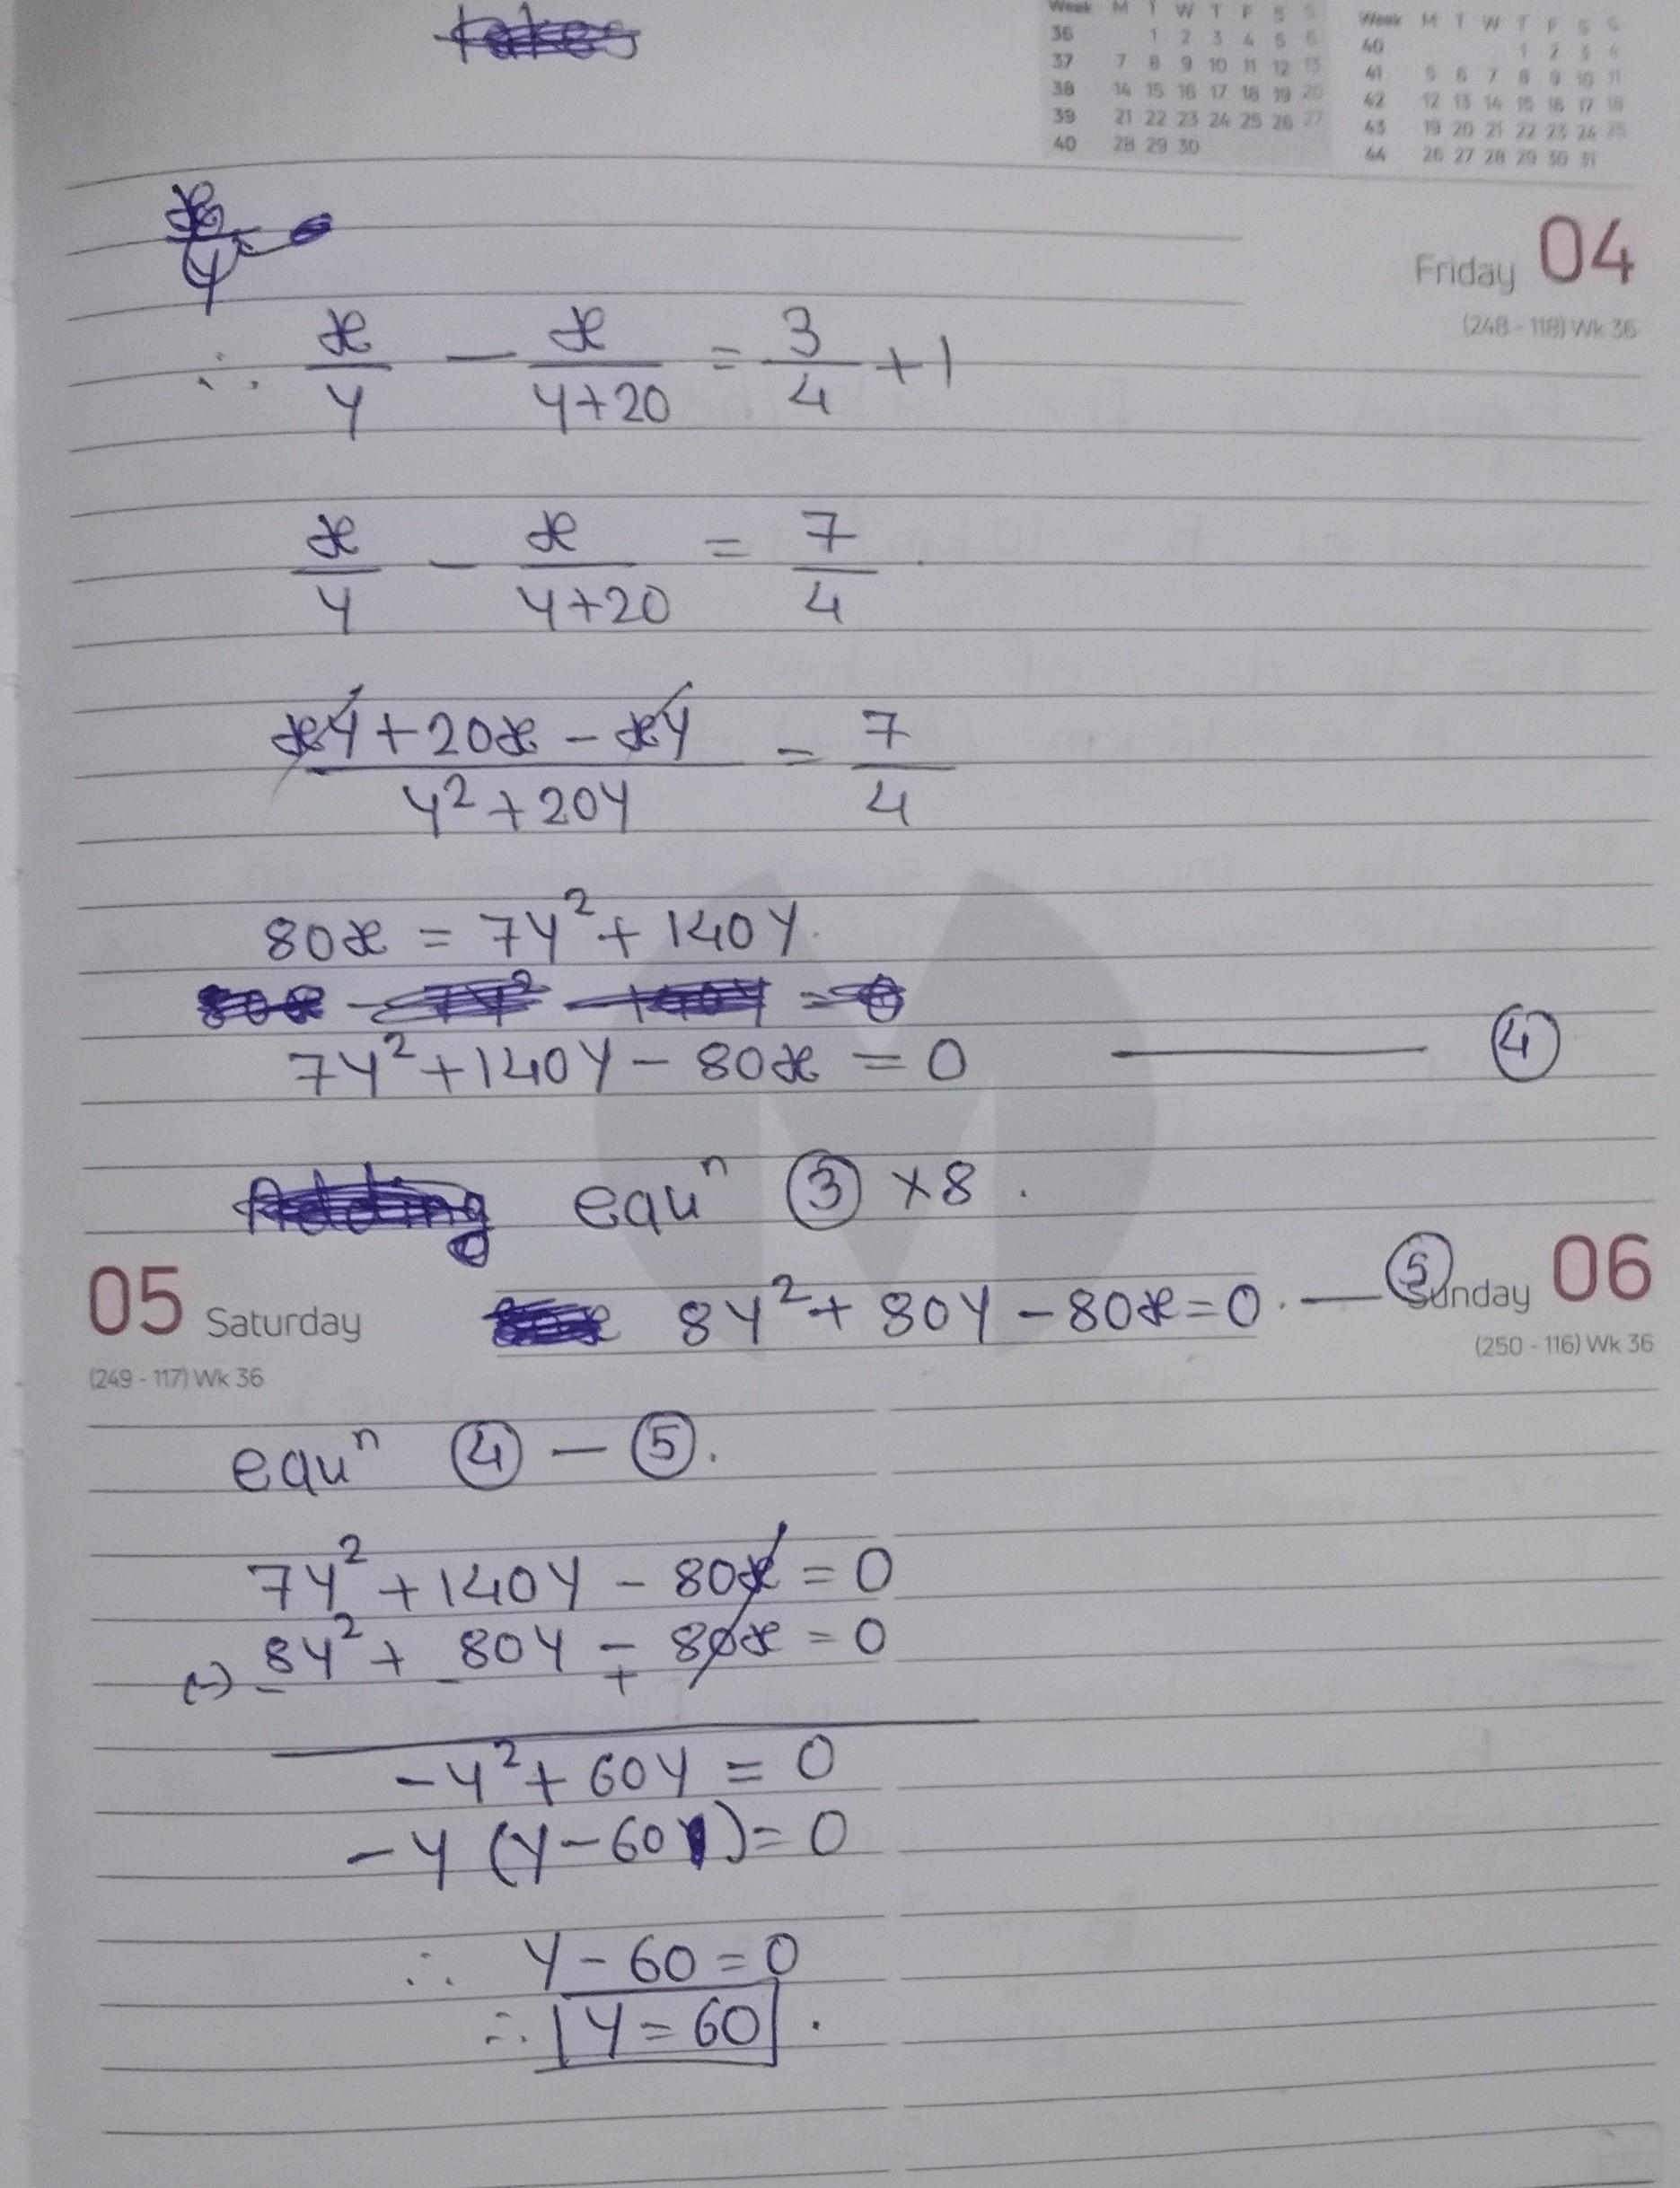 takes
Week M T W T F S S
36 1 2 3 4 5 6
37 7 8 9 10 11 12 13
38 14 15 16 17 18 19 20
39 21 22 23 24 25 26 27
40 28 29 30
Week M T W T F S S
40 1 2 3 4
41 5 6 7 8 9 10 11
42 12 13 14 15 16 17 18
43 19 20 21 22 23 24 25
44 26 27 28 29 30 31
Friday 04
(248 - 118) Wk 36
∴ x/y − x/(y+20) = 3/4 + 1
x/y − x/(y+20) = 7/4
(xy + 20x − xy)/(y² + 20y) = 7/4
80x = 7y² + 140y.
7y² + 140y − 80x = 0 —— ④
Adding equⁿ ③ × 8 .
05 Saturday
(249 - 117) Wk 36
8y² + 80y − 80x = 0. — ⑤
Sunday 06
(250 - 116) Wk 36
equⁿ ④ − ⑤.
7y² + 140y − 80x = 0
(-) 8y² + 80y − 80x = 0
− − +
−y² + 60y = 0
−y (y − 60) = 0
∴ y − 60 = 0
∴ y = 60 .